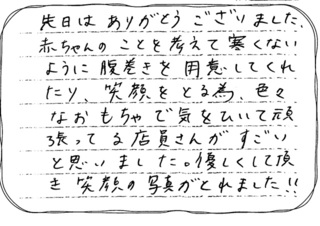 先日は ありがとう ございました。
赤ちゃんの ことを考えて寒くない
ように 腹巻きを 用意してくれ
たり、笑顔を とる為、色々
なおもちゃで気をひいて頑
張ってる店員さんがすごい
と思いました。優しくして頂
き 笑顔の写真がとれました!!